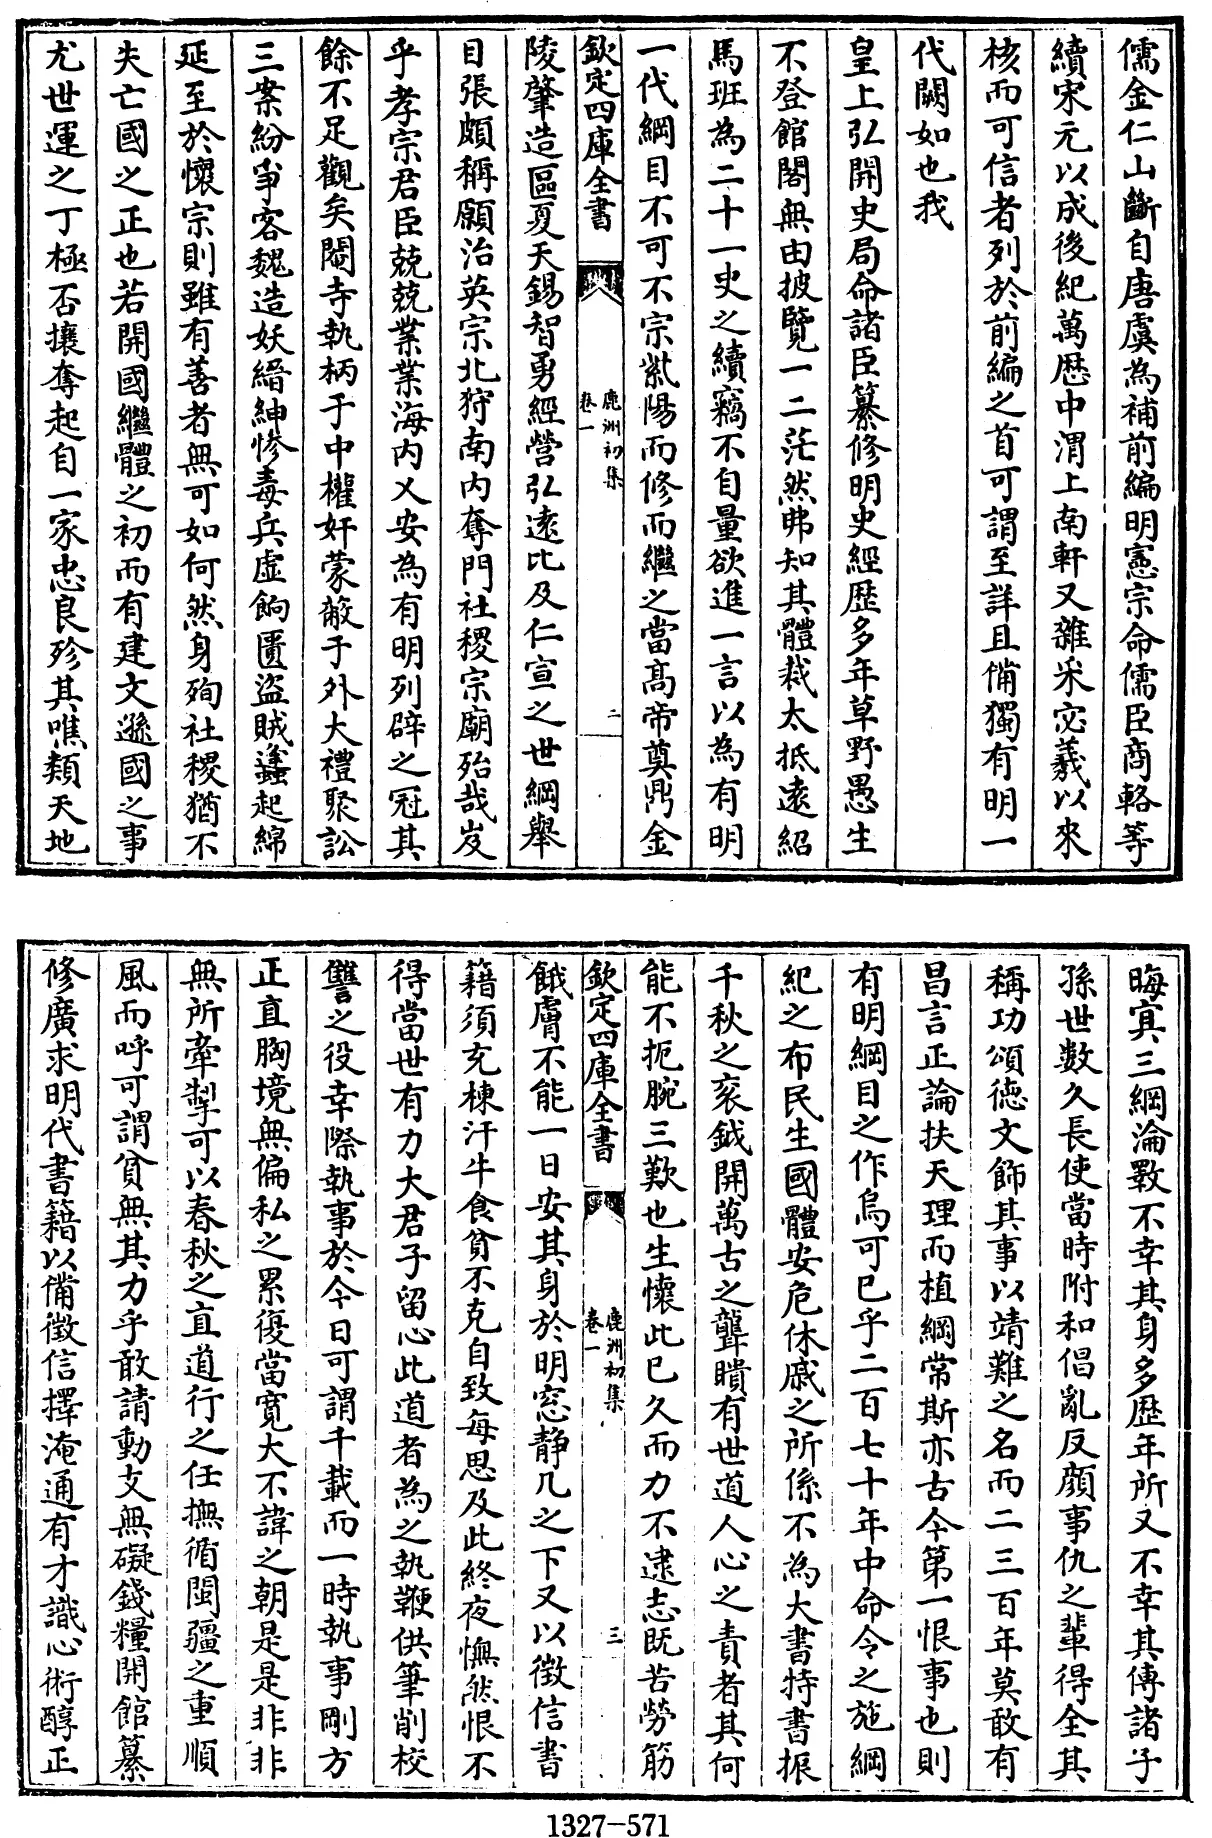 儒金仁山斷自唐虞為補前編明憲宗命儒臣商輅等
續宋元以成後紀萬厯中渭上南軒又雜采宓羲以來
核而可信者列於前編之首可謂至詳且備獨有明一
代闕如也我
皇上弘開史局命諸臣纂修明史經歴多年草野愚生
不登館閣無由披覽一二茫然弗知其體裁太抵遠紹
馬班為二十一史之續竊不自量欲進一言以為有明
一代綱目不可不宗紫陽而修而繼之當髙帝奠鼎金
欽定四庫全書
鹿洲初集
卷一
二
陵肇造區夏天錫智勇經營弘遠比及仁宣之世綱舉
目張頗稱願治英宗北狩南内奪門社稷宗廟殆哉岌
乎孝宗君臣兢兢業業海内乂安為有明列辟之冠其
餘不足觀矣閹寺執柄于中權奸蒙蔽于外大禮聚訟
三案紛爭客魏造妖縉紳慘毒兵虛餉匱盜賊蠭起綿
延至於懷宗則雖有善者無可如何然身殉社稷猶不
失亡國之正也若開國繼體之初而有建文遜國之事
尤世運之丁極否攘奪起自一家忠良殄其噍類天地
晦冥三綱淪斁不幸其身多歴年所又不幸其傳諸子
孫世數久長使當時附和倡亂反顔事仇之輩得全其
稱功頌徳文飾其事以靖難之名而二三百年莫敢有
昌言正論扶天理而植綱常斯亦古今第一恨事也則
有明綱目之作烏可已乎二百七十年中命令之施綱
紀之布民生國體安危休戚之所係不為大書特書振
千秋之衮鉞開萬古之聾瞶有世道人心之責者其何
能不扼腕三歎也生懷此已久而力不逮志既苦勞筋
欽定四庫全書
鹿洲初集
卷一
三
餓膚不能一日安其身於明窓静几之下又以徵信書
籍須充棟汗牛食貧不克自致每思及此終夜憮然恨不
得當世有力大君子留心此道者為之執鞭供筆削校
讐之役幸際執事於今日可謂千載而一時執事剛方
正直胸境無偏私之累復當寛大不諱之朝是是非非
無所牽掣可以春秋之直道行之任撫循閩疆之重順
風而呼可謂貧無其力乎敢請動支無礙錢糧開館纂
修廣求明代書籍以備徵信擇淹通有才識心術醇正
1327-571